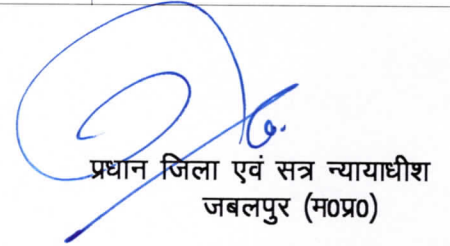 प्रधान जिला एवं सत्र न्यायाधीश
जबलपुर (म0प्र0)